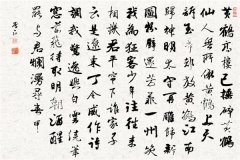 黄鶴高樓已搥碎黄鶴
仙人無所依黄鶴上天
訴玉帝却放黄鶴江南
歸神明太守再雕飾新
圖粉壁還芳菲一州笑
我為狂客少年往往来
相譏君平簾下誰家子
云是遼東丁令威作詩
調我驚逸興白雲繞筆
窗前飛待取明朝酒醒
罷與君爛漫尋春暉